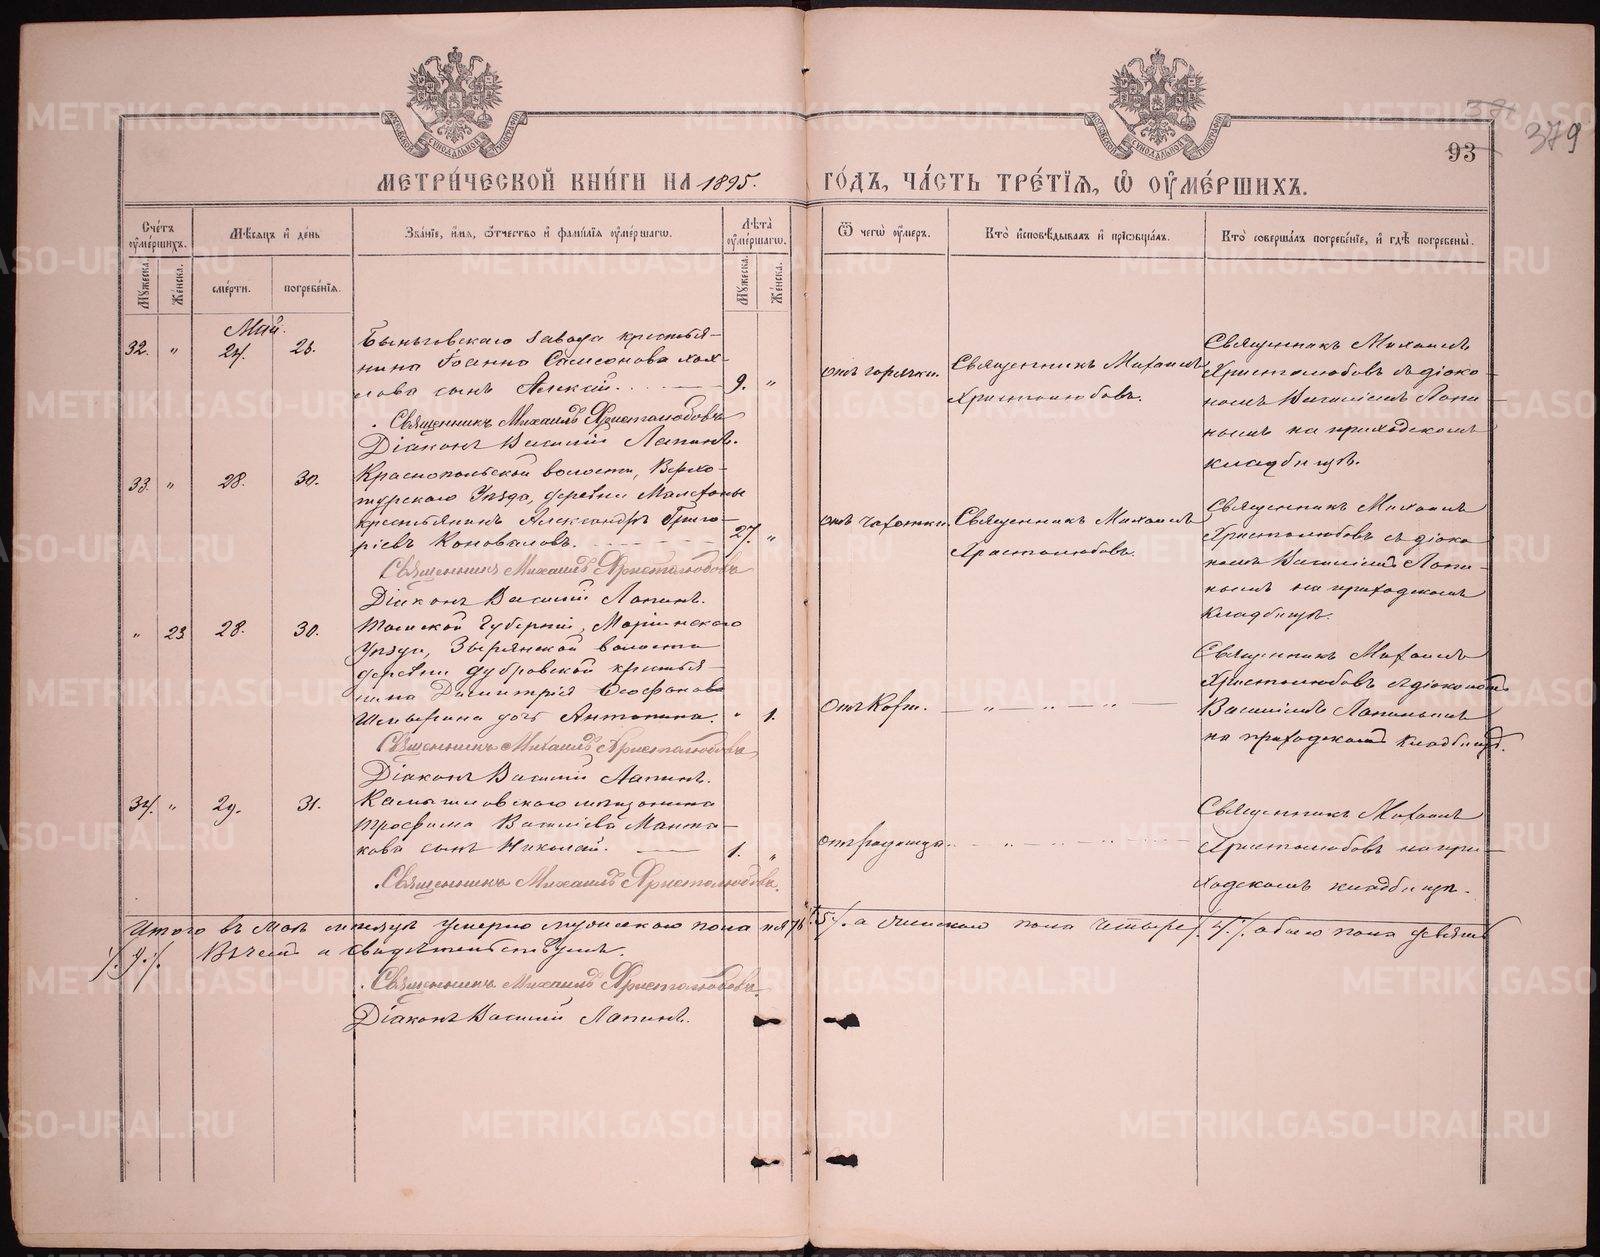 МЕТРИ́ЧЕСКОЙ КНИ́ГИ НА 1895. ГО́ДЪ, ЧА́СТЬ ТРЕ́ТЇѦ, Ѡ҆ ОУ҆МЕ́РШИХЪ.
93
379
Сче́тъ оу҆ме́ршихъ.
Мѣ́сѧцъ и҆ де́нь
Зва́нїе, и҆́мѧ, ѻ҆́тчество и҆ фами́лїѧ оу҆ме́ршагѡ.
Лѣ́та оу҆ме́ршагѡ.
Ѿ чегѡ̀ оу҆́меръ.
Кто̀ и҆сповѣ́дывалъ и҆ прїѡбща́лъ.
Кто̀ соверша́лъ погребе́нїе, и҆ гдѣ̀ погребены̀.
Мꙋ́жеска.
Же́нска.
сме́рти.
погребе́нїѧ.
Мꙋ́жеска.
Же́нска.
Май.
32. " 24. 25.
Быньговскаго завода крестья-
нина Іоанна Самсонова
сынъ Алексѣй. 9. "
. Священникъ Михаилъ Христолюбовъ
Діаконъ Василій Лапинъ.
отъ горячки.
Священникъ Михаилъ
Христолюбовъ.
Священникъ Михаилъ
Христолюбовъ съ діако-
номъ Василіемъ Лапи-
нымъ на приходскомъ
кладбищѣ.
33. " 28. 30.
Краснопольской волости, Верхо-
турскаго Уѣзда, деревни
крестьянинъ Александръ Григо-
ріевъ Коноваловъ. 27. "
Священникъ Михаилъ Христолюбовъ
Діаконъ Василій Лапинъ.
отъ чахотки.
Священникъ Михаилъ
Христолюбовъ.
Священникъ Михаилъ
Христолюбовъ съ діако
номъ Василіемъ Лапи-
нымъ на приходскомъ
кладбищѣ.
" 23 28. 30.
Томской Губерніи, Маріинскаго
Уѣзда, Зырянской волости
деревни Дубровской крестья-
нина Димитрія Ѳеофанова
дочь Антонина. " 1.
Священникъ Михаилъ Христолюбовъ
Діаконъ Василій Лапинъ.
отъ Кори.
— " — " — " —
Священникъ Михаилъ
Христолюбовъ съ діакономъ
Василіемъ Лапинымъ
на приходскомъ кладбищѣ.
34. " 29. 31.
Камышловскаго мѣщанина
Трофима Василіева
сынъ Николай. 1. "
. Священникъ Михаилъ Христолюбовъ.
отъ родимца.
Священникъ Михаилъ
Христолюбовъ на при-
ходскомъ кладбищѣ.
Итого въ Маѣ мѣсяцѣ умерло мужескаго пола пять /.5./. а женскаго пола четыре /.4./. обоего пола девять
/.9./. Въ чемъ и свидѣтельствуемъ.
. Священникъ Михаилъ Христолюбовъ.
Діаконъ Василій Лапинъ.
METRIKI.GASO-URAL.RU